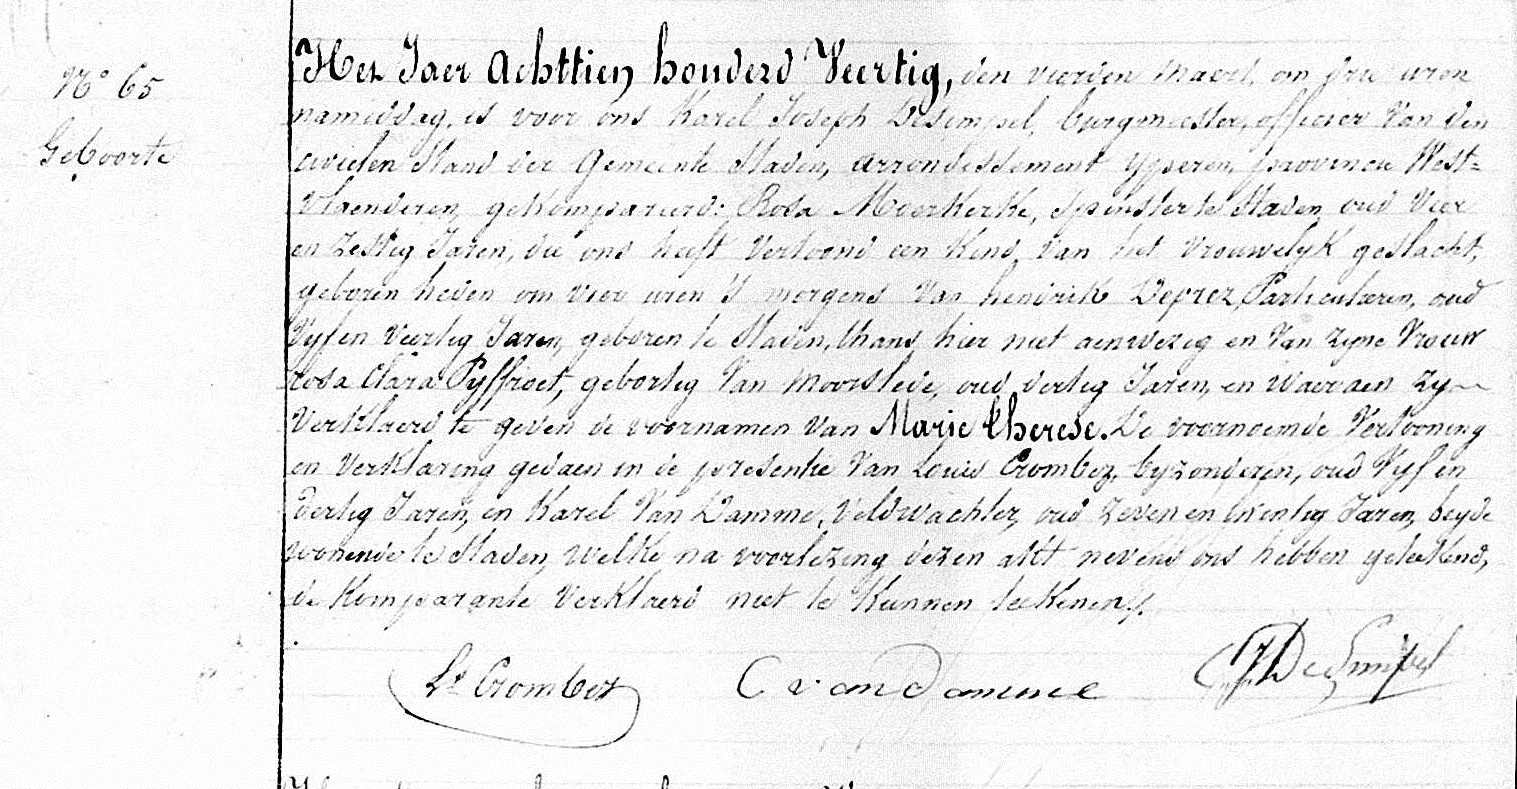 N° 65
Geboorte
Het Jaer Achttien honderd Veertig, den vierden Maert, om drie uren
namiddag, is voor ons Karel Joseph Desimpel, burgmeester, officier Van den
civielen Stand der Gemeente Staden, arrondissement Ypseren, provincie West=
Vlaenderen, gekompareerd: Rosa Moerkerke, Spinster te Staden, oud Vier
en Zestig Jaren, die ons heeft Vertoond een Kind, Van het Vrouwelyk geslacht,
geboren heden om vier uren 's morgens Van hendrik Deprez, Particulieren, oud
Vyf en Veertig Jaren, geboren te Staden, thans hier niet aenwezig en Van zyne Vrouw
rosa Clara Pyffroet, gebortig Van Moorslede, oud dertig Jaren, en Waeraen Zy
Verklaerd te geven de voornamen Van Marie therese. De voornoemde Vertooning
en Verklaring gedaen in de presentie Van Louis Crombez, byzonderen, oud Vyf en
dertig Jaren, en Karel Van Damme, Veldwachter, oud Zeven en twentig Jaren, beyde
wonende te Staden, Welke na voorlezing dezen akt nevens ons hebben geteekend,
de Komparante Verklaerd niet te Kunnen teekenen.
Ls Crombez C vandamme CJ DeSimpel